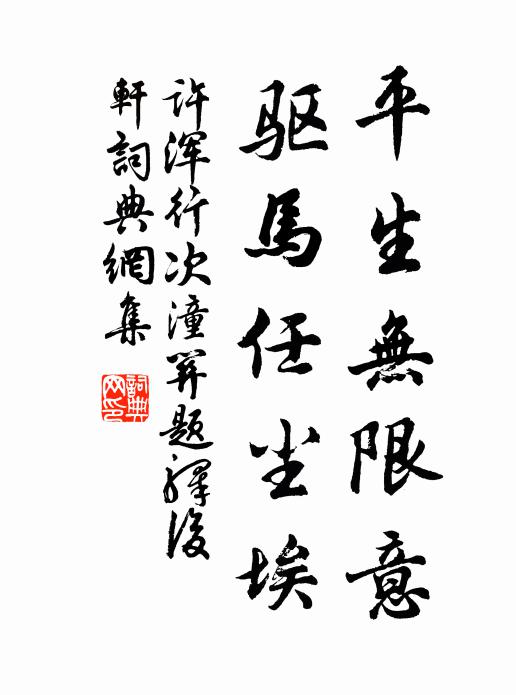 平生無限意
驱馬任尘埃
许浑行次潼關题驛後
軒詞典網集
詞典
网印